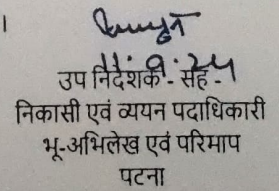 11.9.24
उप निदेशक - सह -
निकासी एवं व्ययन पदाधिकारी
भू-अभिलेख एवं परिमाप
पटना